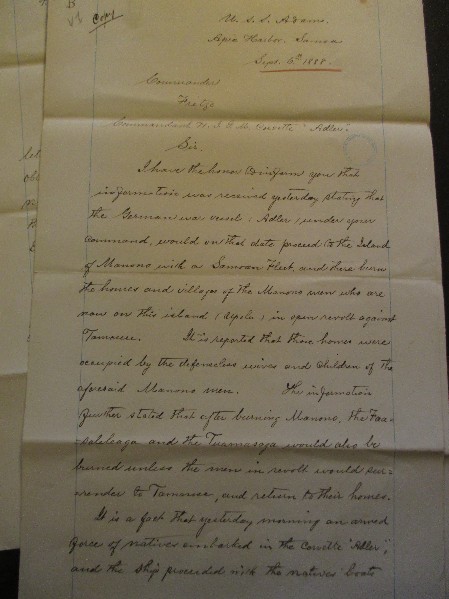 B
Copy
U. S. S. Adams.
Apia Harbor. Samoa
Sept. 6th 1888.
Commander
Fritze
Commandant H. I. G. M. Corvette "Adler".
Sir.
I have the honor to inform you that
information was received yesterday stating that
the German war vessel "Adler", under your
command, would on that date proceed to the Island
of Manono with a Samoan Fleet, and there burn
the homes and villages of the Manono men who are
now on this island (Upolu) in open revolt against
Tamasese. It is reported that these homes were
occupied by the defenseless wives and children of the
aforesaid Manono men. The information
further stated that after burning Manono, the Faa-
saleleaga and the Tuamasaga would also be
burned unless the men in revolt would sur-
render to Tamasese, and return to their homes.
It is a fact that yesterday morning an armed
force of natives embarked in the Corvette "Adler",
and the ship proceeded with the natives boats